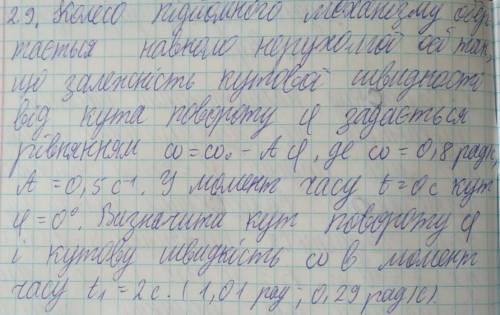 29. Колесо підйомного механізму обер
тається навколо нерухомої осі так,
що залежність кутової швидкості
від кута повороту φ задається
рівнянням ω=ω₀-Aφ, де ω=0,8 рад/с
A=0,5 с⁻¹. У момент часу t=0c кут
φ=0°. Визначити кут повороту φ
і кутову швидкість ω в момент
часу t₁=2c. (1,01 рад; 0,29 рад/с)